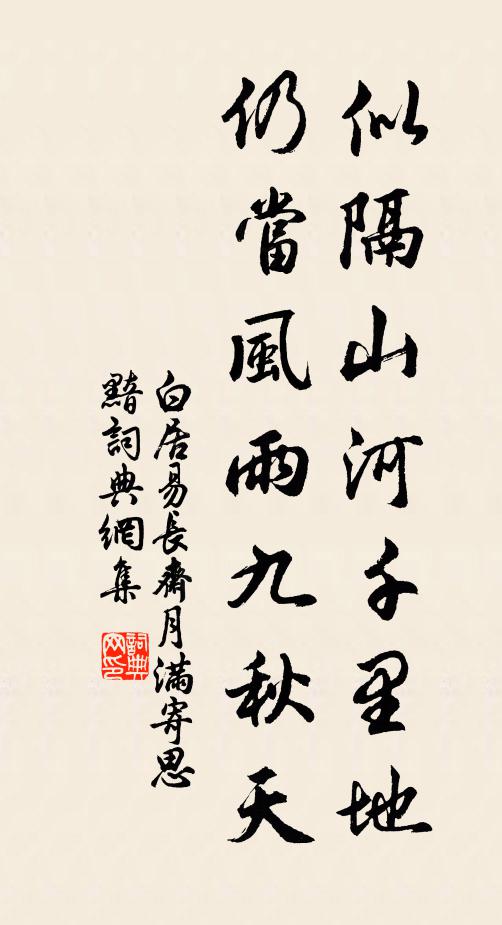 似隔山河千里地
仍當風雨九秋天
白居易長齋月滿寄思
黯詞典網集
詞典網印